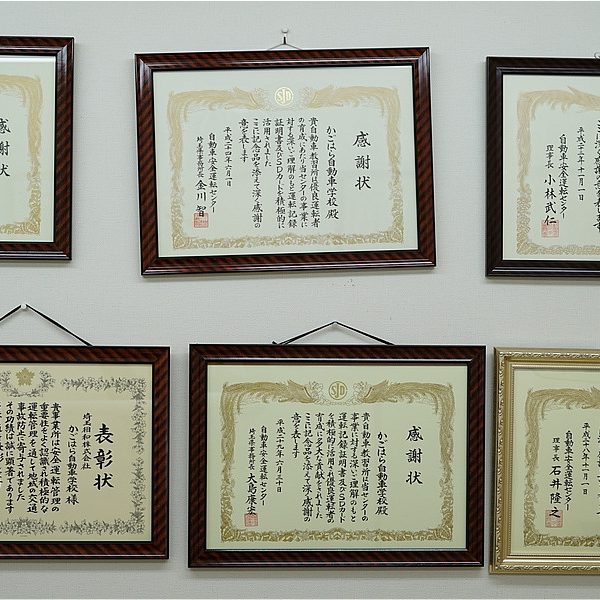 感謝状
感謝状
かごはら自動車学校殿
貴自動車教習所は優良運転者
の育成にあたり当センターの事業に
対する深いご理解のもと運転記録
証明書及びSDカードを積極的に
活用されました
ここに記念品を添えて深く感謝の
意を表します
平成二十四年六月一日
自動車安全運転センター
埼玉県事務所長 金川智
平成二十六年十一月一日
自動車安全運転センター
理事長 小林武仁
表彰状
埼玉昭和株式会社
かごはら自動車学校様
貴事業所は安全運転管理の
重要性をよく認識され積極的な
運転管理を通じて地域の交通
事故防止に寄与されました
その功績は誠に顕著であります
感謝状
かごはら自動車学校殿
貴自動車教習所は当センターの
事業に対する深いご理解のもと
運転記録証明書及びSDカード
を積極的に活用され優良運転者の
育成に多大な貢献をされました
ここに記念品を添えて深く感謝の
意を表します
平成二十九年六月三十日
自動車安全運転センター
埼玉県事務所長 大島康宏
平成二十八年十一月一日
自動車安全運転センター
理事長 石井隆之